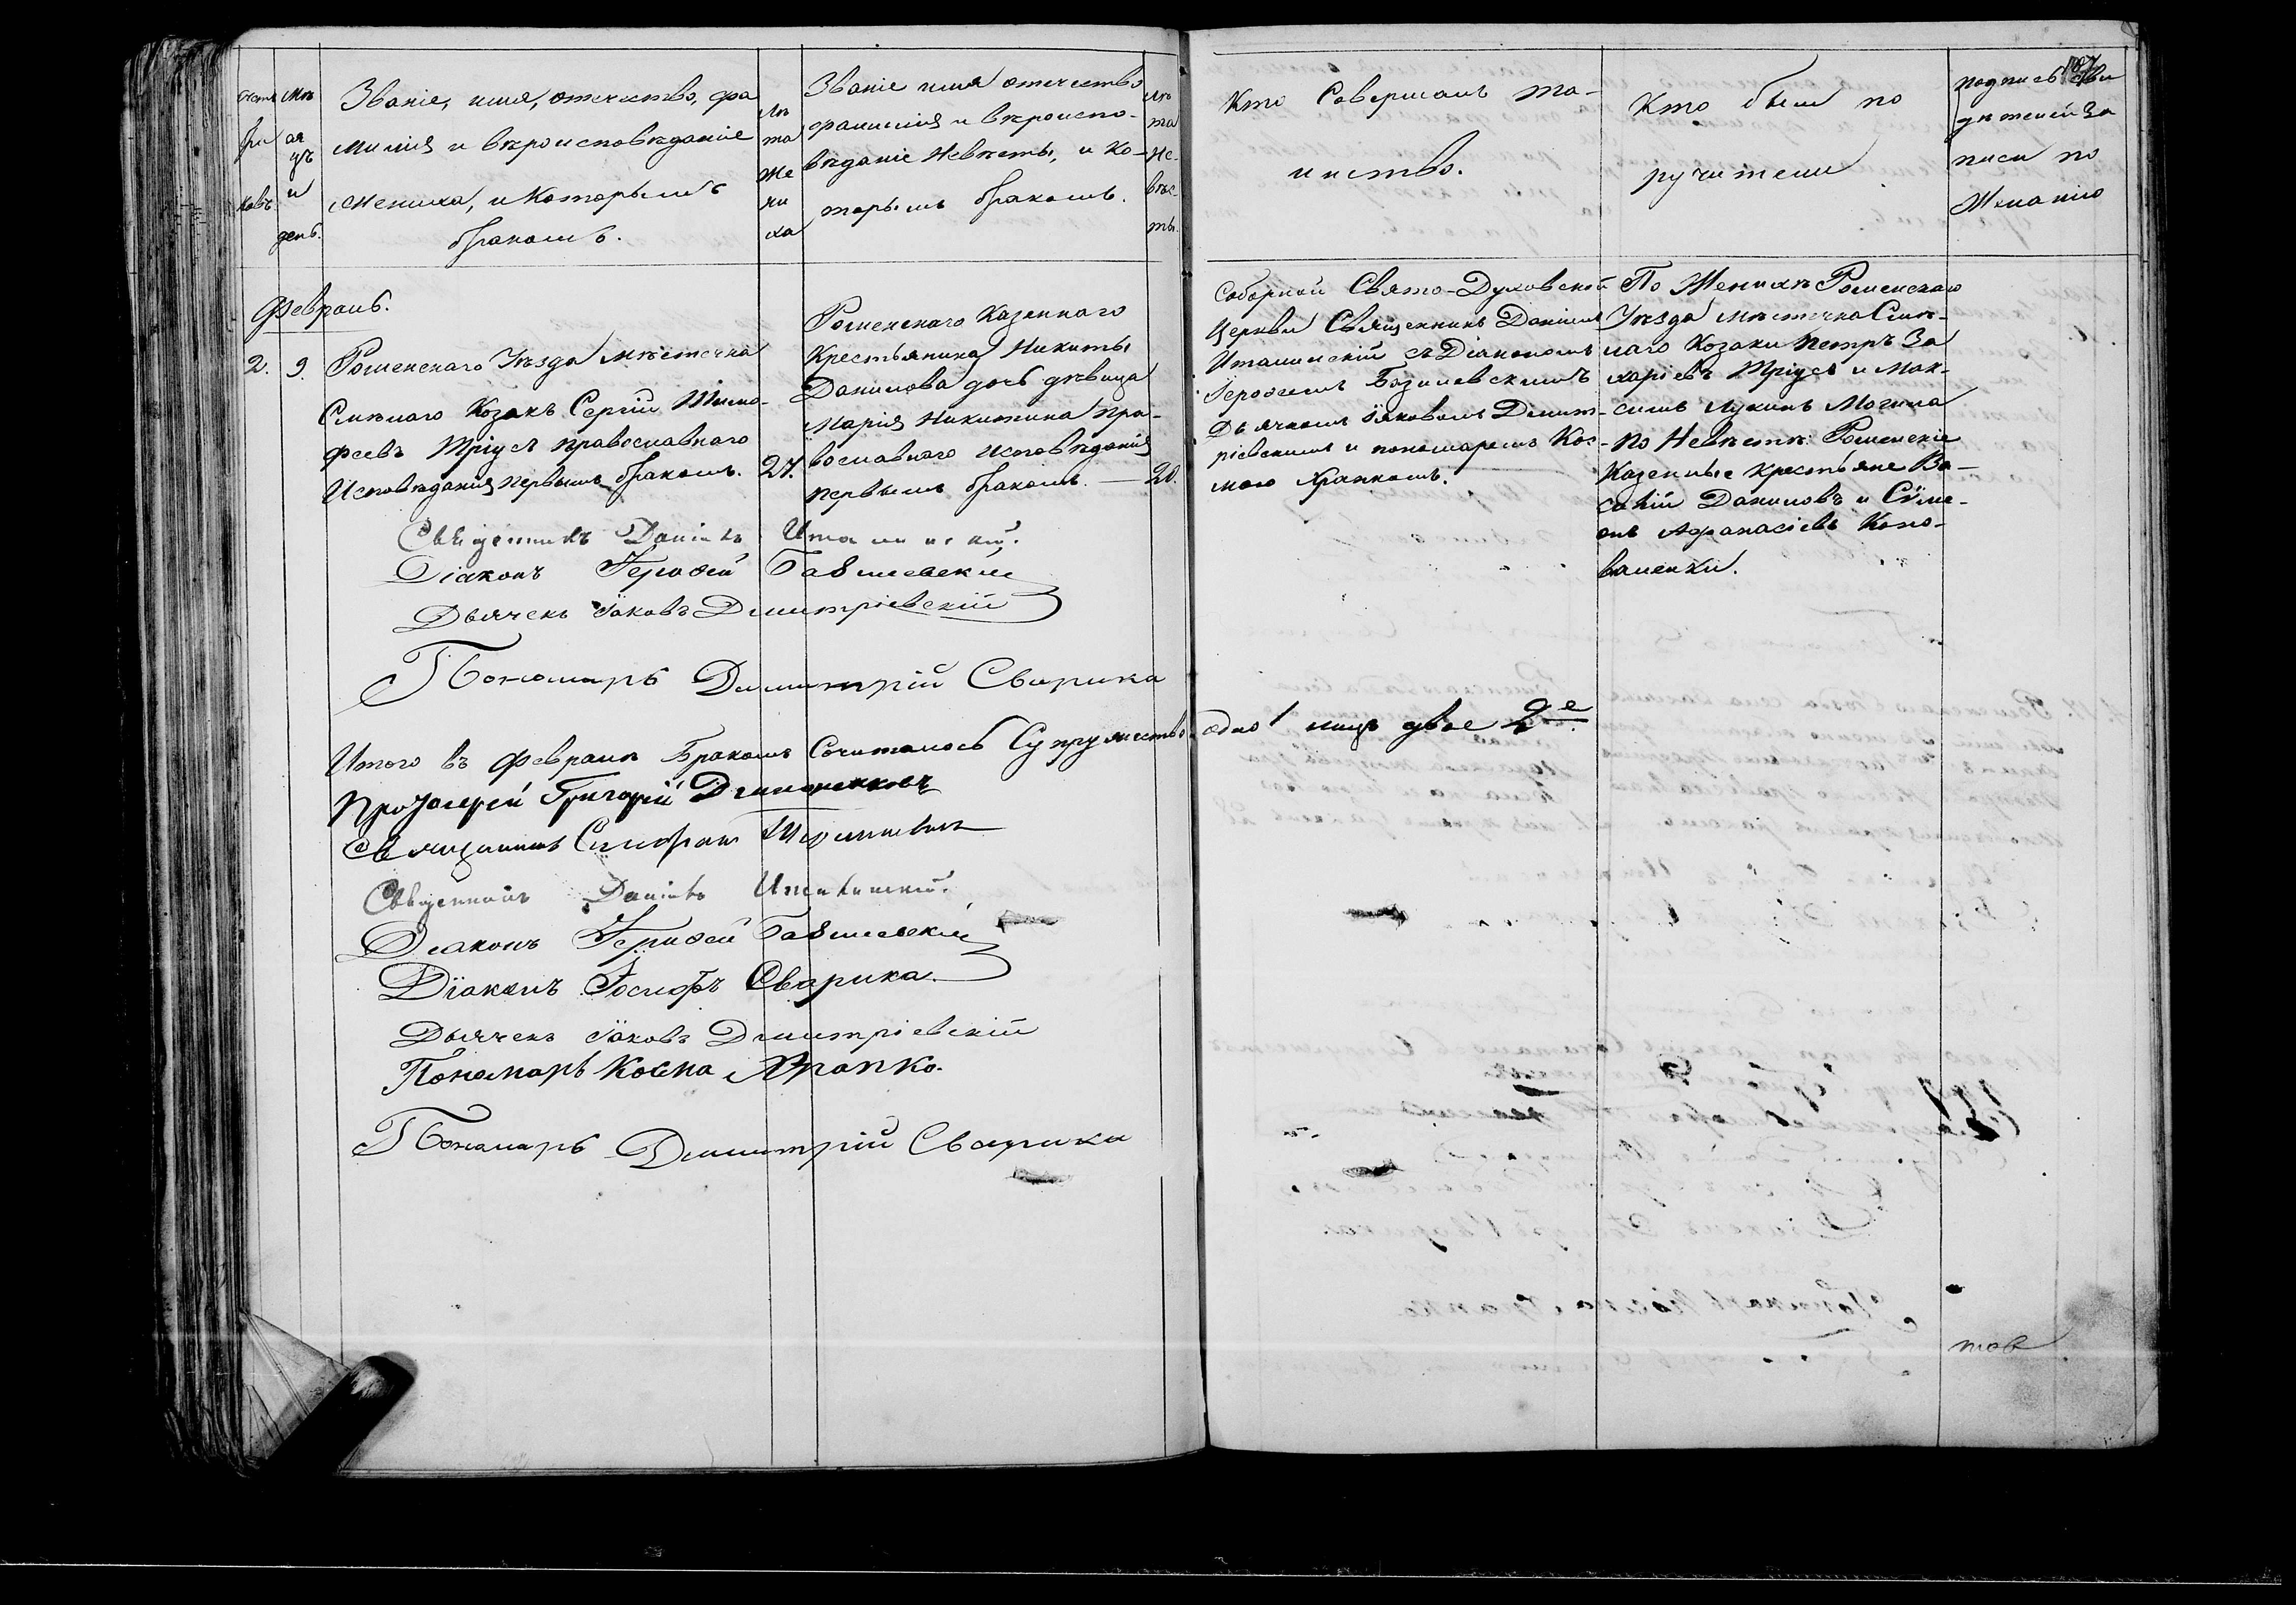 Счетъ
бра
ковъ.
Мѣ
ся
цъ
и
день.
Званіе, имя, отечество, фа
милія и вѣроисповѣданіе
жениха, и Которымъ
бракомъ.
Лѣ
та
же
ни
ха
Званіе имя отечество
фамилія и вѣроиспо-
вѣданіе Невѣсты, и Ко-
торымъ бракомъ.
Лѣ
та
Не-
вѣс-
ты.
Кто Совершалъ та-
инство.
Кто были по
ручители
подпись сви
дѣтелей За
писи по
Желанію
Февраль.
2. 9. Роменскаго Уѣзда мѣстечка
Смѣлаго Козакъ Сергій Тимо-
феевъ Тріусъ православнаго
Исповѣданія первымъ бракомъ. 27.
Роменскаго Казеннаго
Крестьянина Никиты
Данилова дочь дѣвица
Марія Никитина пра-
вославнаго исповѣданія
первымъ бракомъ. — 20.
Соборной Свято-Духовской
Церкви Священникъ Даніилъ
Италинскій съ Діакономъ
Іерофеемъ Базилевскимъ
Дьячкомъ Іяковомъ Димит-
ріевскимъ и пономаремъ Кос-
мою Храпкомъ.
По Женихѣ Роменскаго
Уѣзда мѣстечка Смѣ-
лаго Козаки Петръ За
харіевъ Тріусъ и Мак-
симъ Лукинъ Могила
По Невѣстѣ: Роменскіе
Казенные крестьяне Ва-
силій Даниловъ и Сѵме-
онъ Афанасіевъ Коно-
валенки.
Священникъ Даніилъ Италинскій.
Діаконъ Іерофей Базилевскій
Дьячекъ Іаковъ Димитріевскій
Пономарь Димитрій Сварика
Итого въ Февралѣ Бракомъ Сочиталось Супружество одно 1 лицъ двое 2е.
Протоіерей Григорій
Священникъ
Священникъ Даніилъ Италинскій.
Діаконъ Іерофей Базилевскій
Діаконъ Іосифъ Сварика.
Дьячекъ Іаковъ Димитріевскій
Пономарь Косма Храпко.
Пономарь Димитрій Сварика